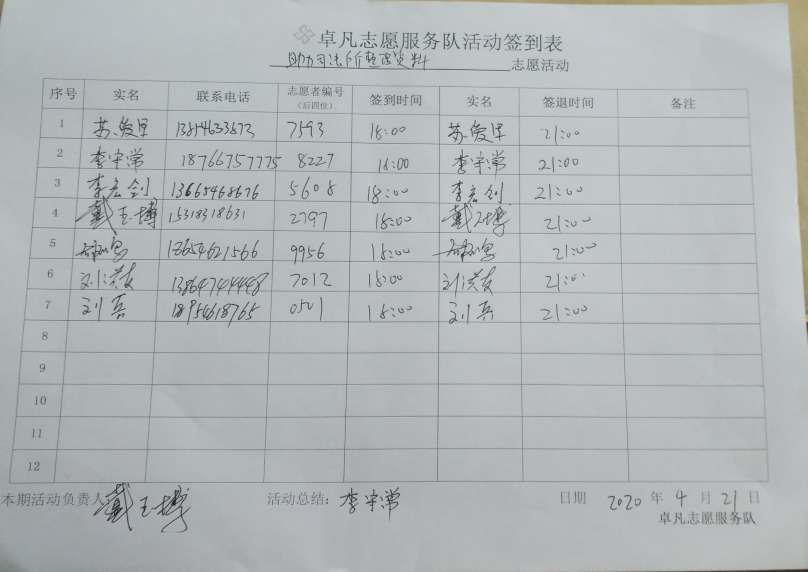 卓凡志愿服务队活动签到表
助力司法所整理资料 志愿活动
序号 实名 联系电话 志愿者编号(后四位) 签到时间 实名 签退时间 备注
1 苏俊星 7593 18:00 苏俊星 21:00
2 李宇常 18766757775 8227 18:00 李宇常 21:00
3 李宏剑 13665468676 5608 18:00 李宏剑 21:00
4 戴玉博 15318318631 2797 18:00 戴玉博 21:00
5 18654621566 9956 18:00 21:00
6 刘洪友 13864744448 7012 18:00 刘洪友 21:00
7 刘兵 18954618765 0501 18:00 刘兵 21:00
8
9
10
11
12
本期活动负责人 戴玉博 活动总结: 李宇常 日期 2020 年 4 月 21 日
卓凡志愿服务队